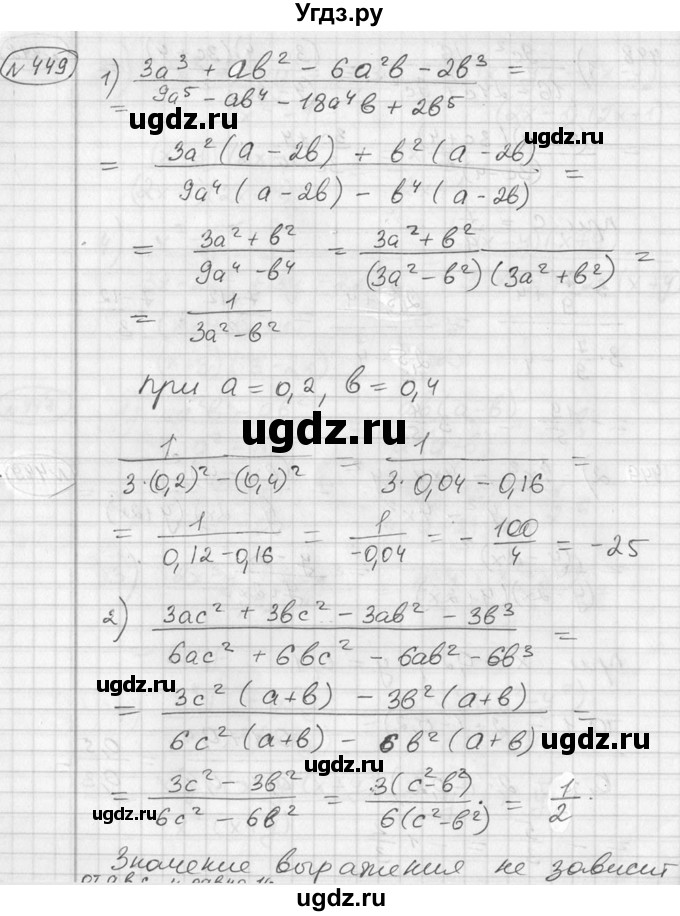 Угдз.ру
№449
1) (3a³ + ab² − 6a²b − 2b³)/(9a⁵ − ab⁴ − 18a⁴b + 2b⁵) =
ugdz.ru ugdz.ru
= (3a²(a − 2b) + b²(a − 2b))/(9a⁴(a − 2b) − b⁴(a − 2b)) =
= (3a² + b²)/(9a⁴ − b⁴) = (3a² + b²)/((3a² − b²)(3a² + b²)) =
= 1/(3a² − b²)
при a = 0,2, b = 0,4
ugdz.ru
1/(3·(0,2)² − (0,4)²) = 1/(3·0,04 − 0,16) =
= 1/(0,12 − 0,16) = 1/(−0,04) = − 100/4 = −25
2) (3ac² + 3bc² − 3ab² − 3b³)/(6ac² + 6bc² − 6ab² − 6b³) =
ugdz.ru
= (3c²(a+b) − 3b²(a+b))/(6c²(a+b) − 6b²(a+b)) =
ugdz.ru
= (3c² − 3b²)/(6c² − 6b²) = 3(c² − b²)/6(c² − b²) = 1/2.
ugdz.ru
Значение выражения не зависит